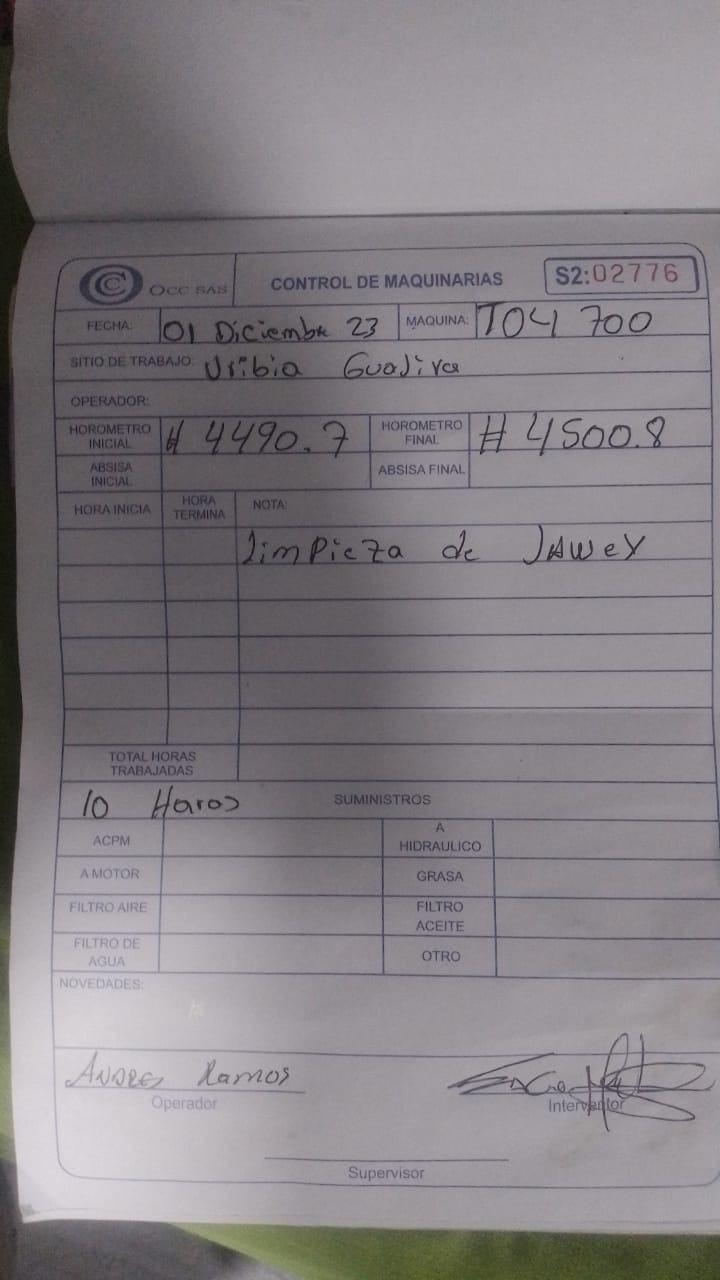 OCC SAS CONTROL DE MAQUINARIAS S2:02776
FECHA: 01 Diciembre 23 MAQUINA: TO4 700
SITIO DE TRABAJO: Uribia Guajira
OPERADOR:
HOROMETRO INICIAL # 4490.7 HOROMETRO FINAL # 4500.8
ABSISA INICIAL ABSISA FINAL
HORA INICIA HORA TERMINA NOTA:
limpieza de JAWEY
TOTAL HORAS TRABAJADAS
10 Haros SUMINISTROS
ACPM A HIDRAULICO
A MOTOR GRASA
FILTRO AIRE FILTRO ACEITE
FILTRO DE AGUA OTRO
NOVEDADES:
ANDRES Ramos
Operador Interventor
Supervisor